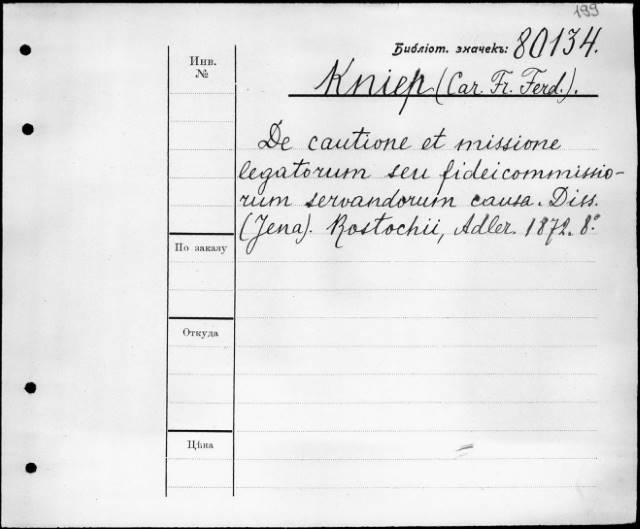 199
Библіот. значекъ: 80134.
Инв.
№
Kniep (Car. Fr. Ferd.).
De cautione et missione
legatorum seu fideicommisso-
rum servandorum causa. Diss.
(Jena). Rostochii, Adler. 1872. 8.°
По заказу
Откуда
Цѣна